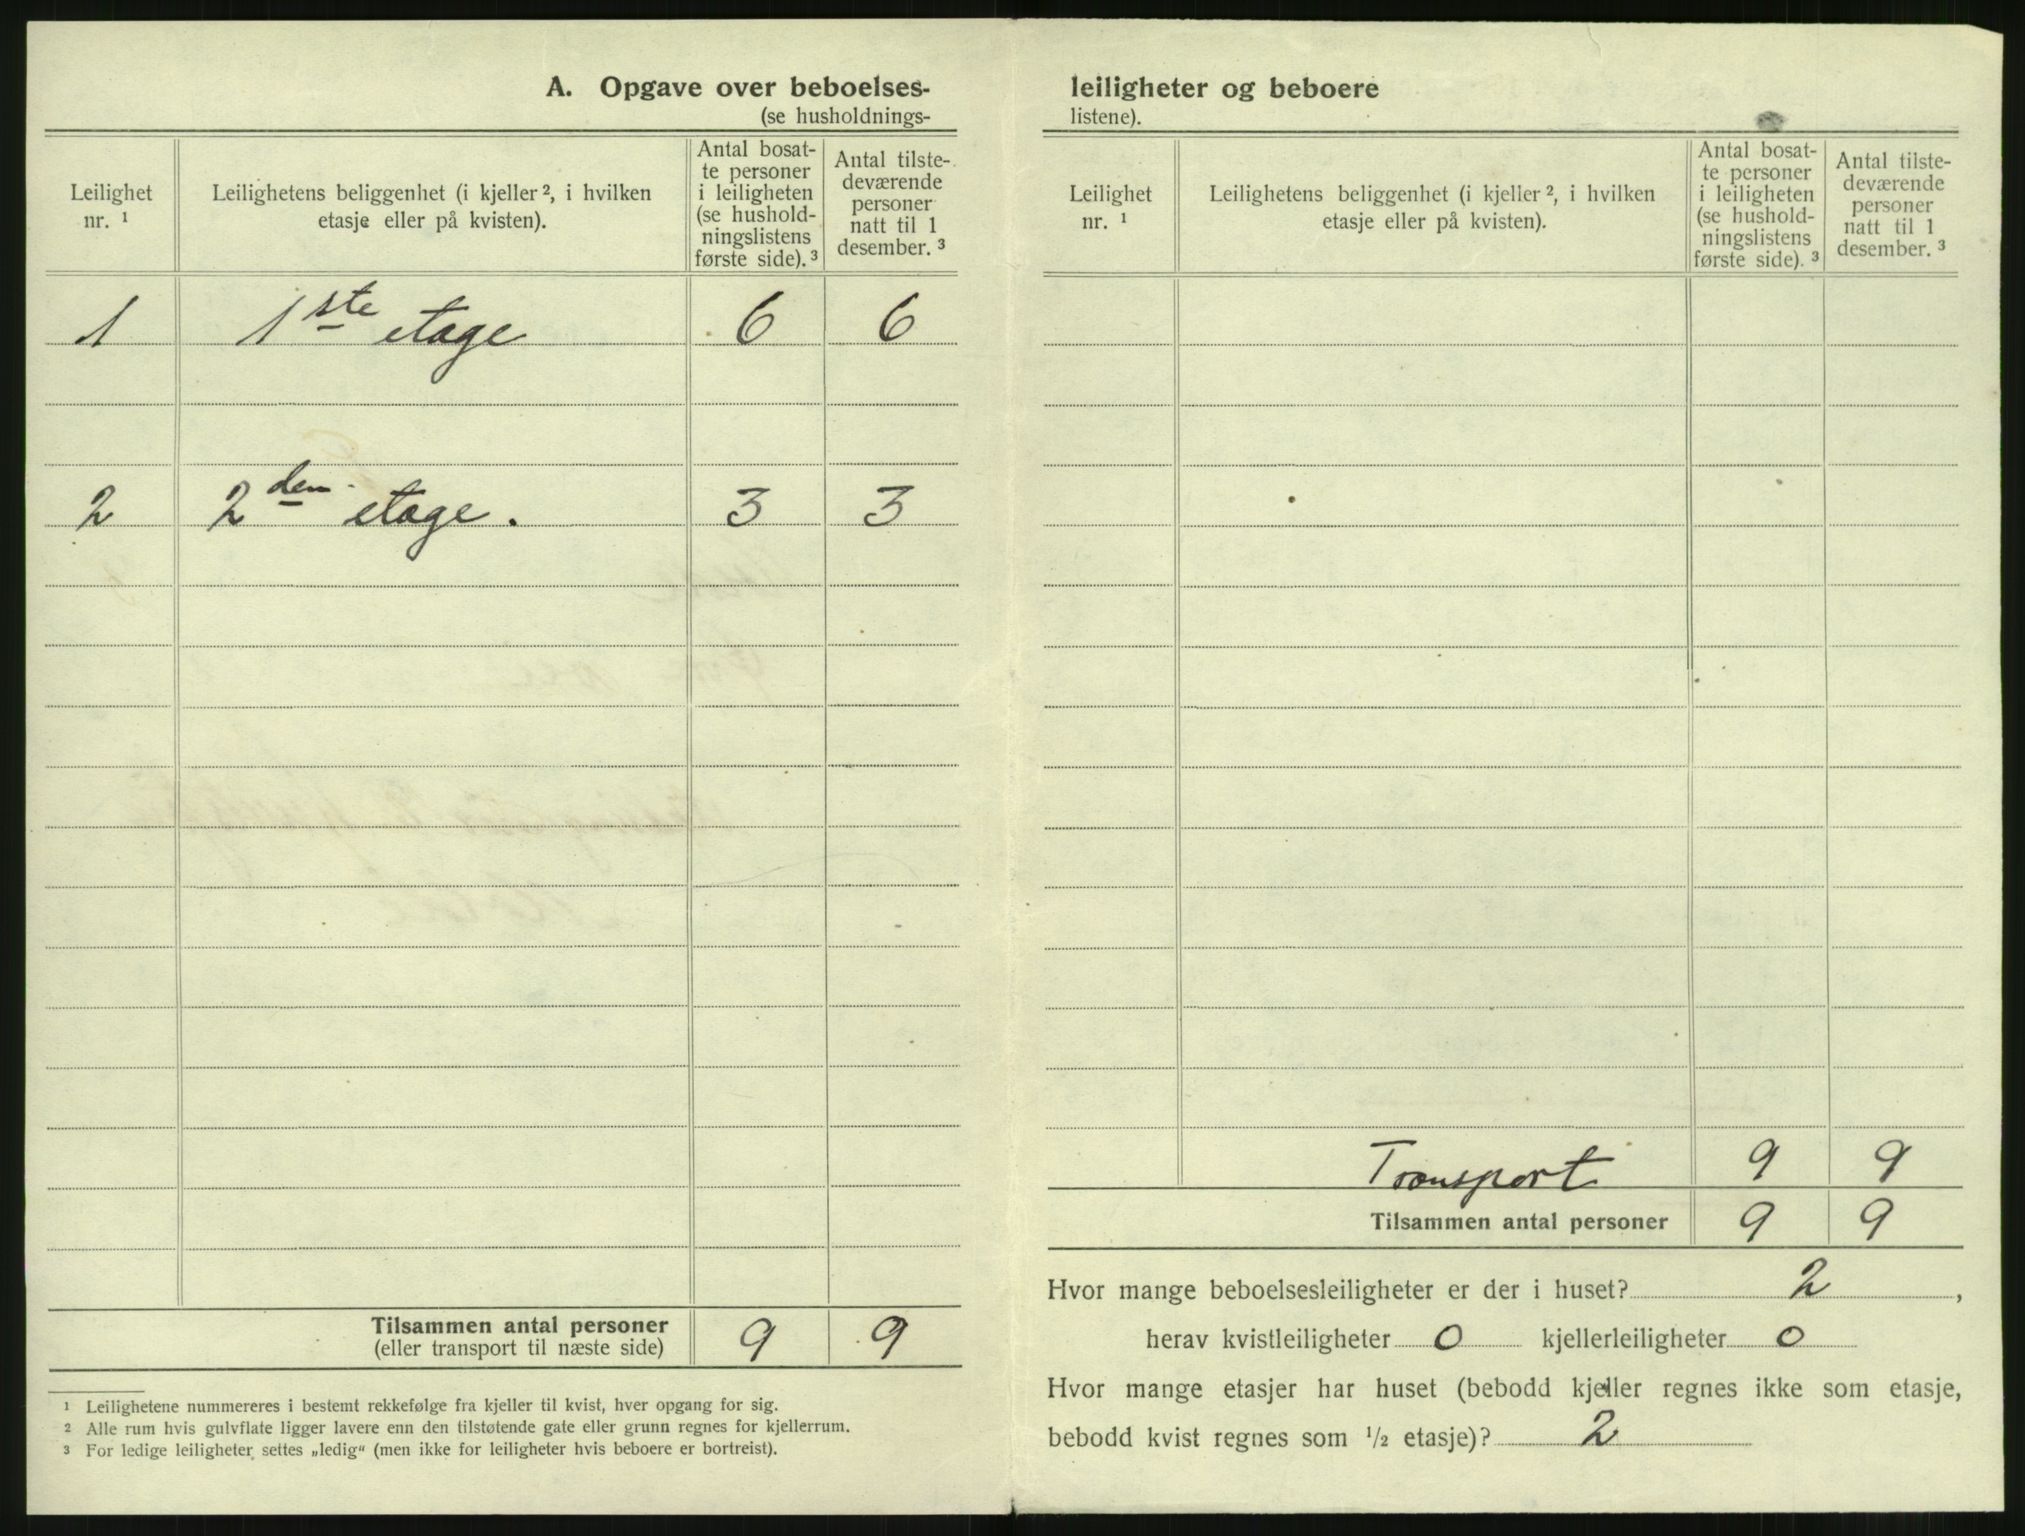 A. Opgave over beboelses-
(se husholdnings-
Leilighet nr. ¹
Leilighetens beliggenhet (i kjeller ², i hvilken etasje eller på kvisten).
Antal bosat-
te personer
i leiligheten
(se hushold-
ningslistens
første side). ³
Antal tilste-
deværende
personer
natt til 1
desember. ³
1 1ste etage 6 6
2 2den etage. 3 3
Tilsammen antal personer 9 9
(eller transport til næste side)
¹ Leilighetene nummereres i bestemt rekkefølge fra kjeller til kvist, hver opgang for sig.
² Alle rum hvis gulvflate ligger lavere enn den tilstøtende gate eller grunn regnes for kjellerrum.
³ For ledige leiligheter settes „ledig“ (men ikke for leiligheter hvis beboere er bortreist).
leiligheter og beboere
listene).
Leilighet nr. ¹
Leilighetens beliggenhet (i kjeller ², i hvilken etasje eller på kvisten).
Antal bosat-
te personer
i leiligheten
(se hushold-
ningslistens
første side). ³
Antal tilste-
deværende
personer
natt til 1
desember. ³
Transport 9 9
Tilsammen antal personer 9 9
Hvor mange beboelsesleiligheter er der i huset? 2 ,
herav kvistleiligheter 0 kjellerleiligheter 0
Hvor mange etasjer har huset (bebodd kjeller regnes ikke som etasje,
bebodd kvist regnes som ½ etasje)? 2